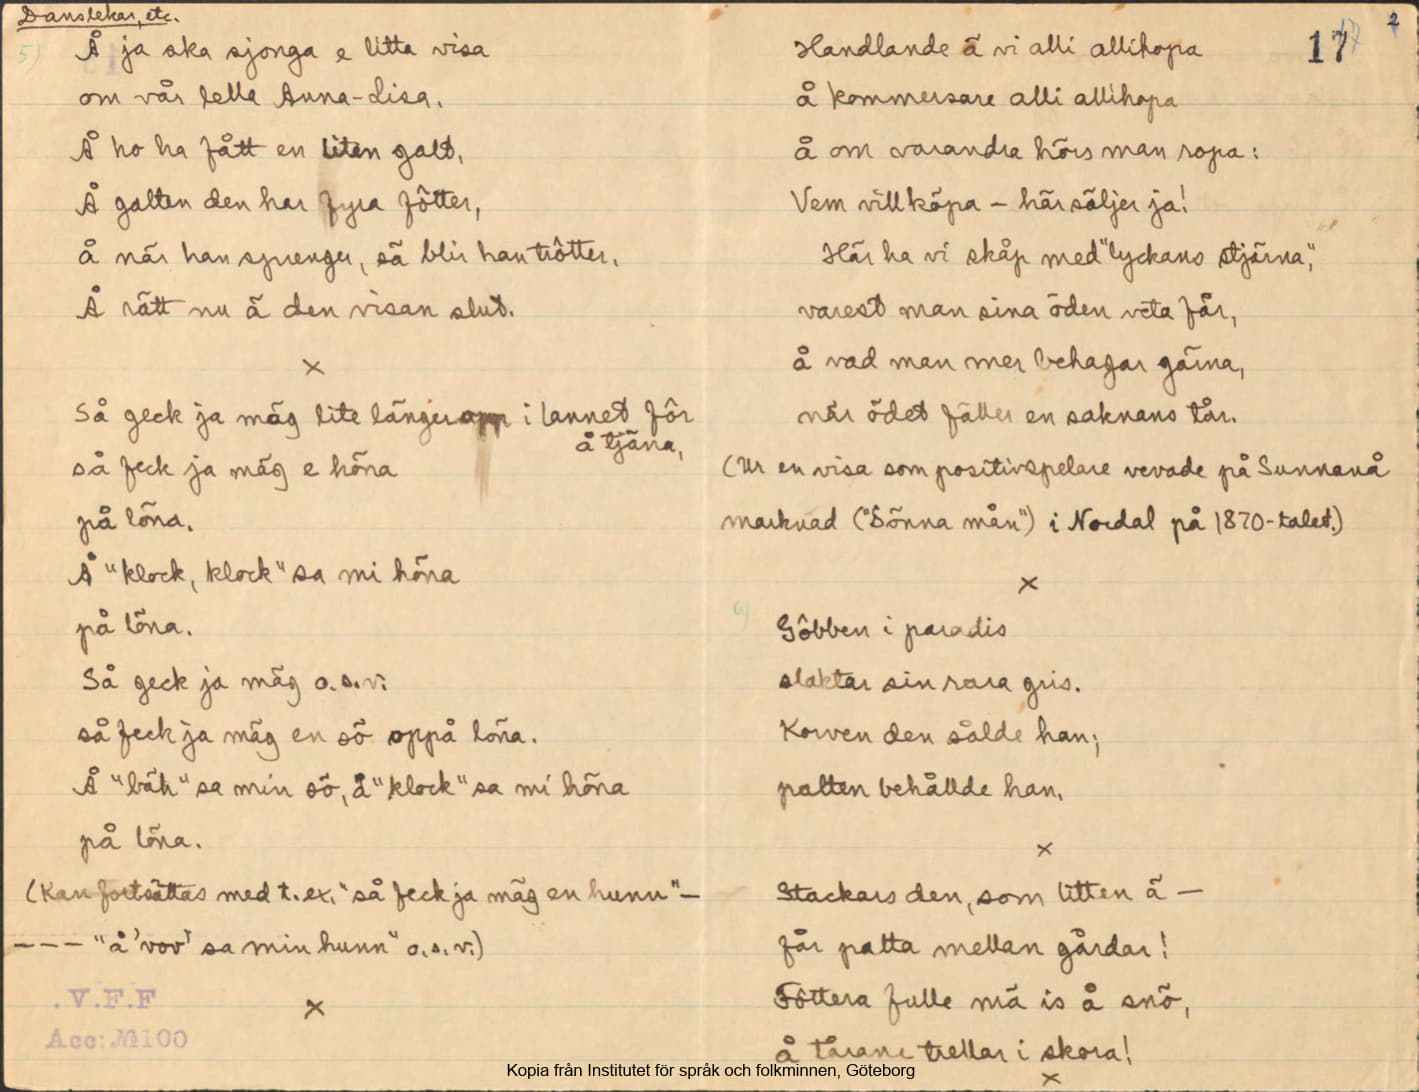 Danslekar, etc.
5)
Å ja ska sjonga e litta visa
om vår lella Anna-Lisa.
Å ho ha fått en liten galt.
Å galten den har fyra fôtter,
å när han sprenger, så blir han trôtter.
Å rätt nu ä den visan slut.
×
Så geck ja mäg lite länger opp i lannet fôr
å tjäna,
så feck ja mäg e höna
på löna.
Å "klock, klock" sa mi höna
på löna.
Så geck ja mäg o.s.v.
så feck ja mäg en sö oppå löna.
Å "bäh" sa min sö, å "klock" sa mi höna
på löna.
(Kan fortsättas med t.ex. "så feck ja mäg en hunn" –
– – – "å 'vov' sa min hunn" o.s.v.)
×
.V.F.F
Acc: № 100
2
17
Handlande ä vi alli allihopa
å kommersare alli allihopa
å om varandra hörs man ropa:
Vem vill köpa – här säljer ja!
Här ha vi skåp med "lyckans stjärna",
varest man sina öden veta får,
å vad man mer behagar gärna,
när ödet fäller en saknans tår.
(Ur en visa som positivspelare vevade på Sunnanå
marknad ("Sönna mån") i Nordal på 1870-talet.)
×
6)
Gôbben i paradis
slaktar sin rara gris.
Korven den sålde han;
palten behållde han.
×
Stackars den, som litten ä –
får patta mellan gårdar!
Fôttera fulle mä is å snö,
å tårane trellar i skora!
×
Kopia från Institutet för språk och folkminnen, Göteborg